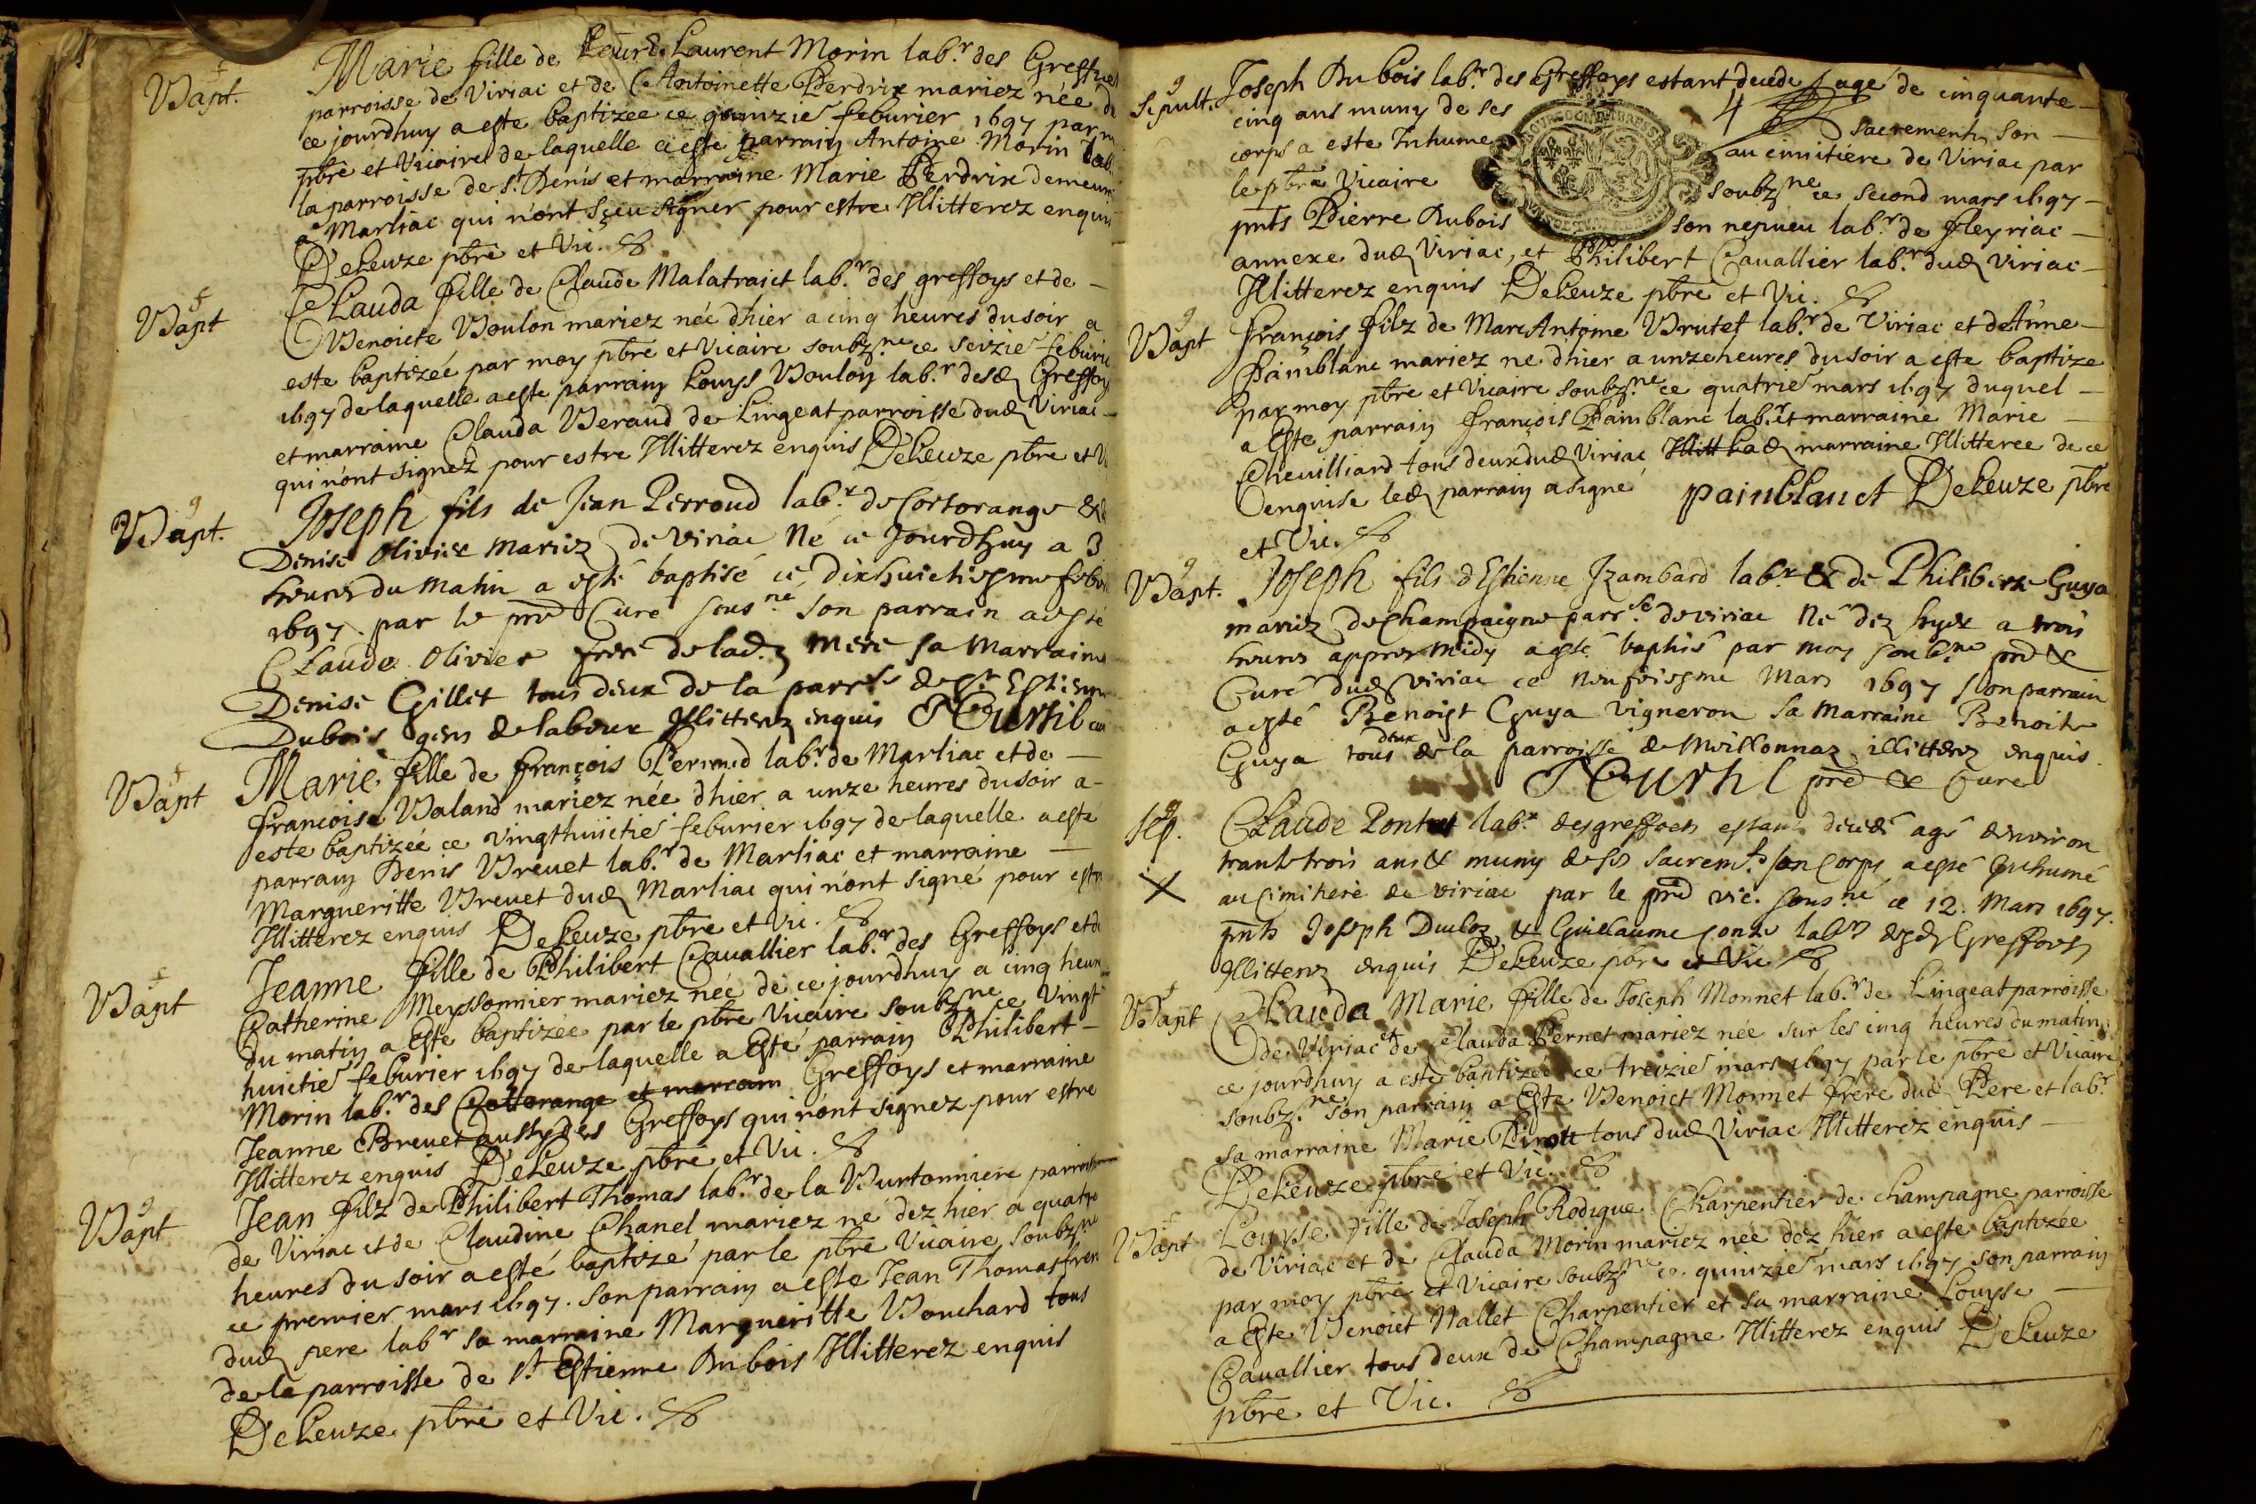 Bapt.
Marie fille de Laurent Morin lab.r des Greffoys
parroisse de Viriac et de Antoinette Perdrix mariez née de
ce jourdhuy a este baptizee ce quinzie feburier 1697 par m
pbre et Vicaire de laquelle a este parrain Antoine Morin lab
la parroisse de st Denis et marraine Marie Perdrix demeura
a Marliac qui nont sçeu signer pour estre Illitterez enquis
DeLeuze pbre et Vic.
Bapt
Clauda fille de Claude Malatraict lab.r des greffoys et de
Benoicte Boulon mariez née dhier a cinq heures du soir a
este baptizée par moy pbre et Vicaire soubz.ne ce seizie feburie
1697 de laquelle a este parrain Louys Boulon lab.r desd Greffoy
et marraine Clauda Beraud de Lingeat parroisse dud Viriac
qui nont signez pour estre Illitterez enquis DeLeuze pbre et V
Bapt.
Joseph fils de Jean Perroud lab.r de Cortorange & de
Denise Olivier mariez de viriac Né ce Jourdhuy a 3
heures du matin a esté baptisé ce dixhuictiesme febvr
1697. par le pre Curé sous.ne son parrain a esté
Claude Olivier frere de lad. mere sa marraine
Denise Gillet tous deux de la parr.se de st Estienne
Dubois gens de labeur Illitterez enquis
Bapt
Marie fille de françois Perraud lab.r de Marliac et de
françoise Baland mariez née dhier a unze heures du soir a
este baptizée ce vingthuictie feburier 1697 de laquelle a este
parrain Denis Brevet lab.r de Marliac et marraine
Margueritte Brevet dud Marliac qui nont signé pour estre
Illitterez enquis DeLeuze pbre et Vic.
Bapt
Jeanne fille de Philibert Cavallier lab.r des Greffoys et de
Catherine Meyssonnier mariez née de ce jourdhuy a cinq heur
du matin a este baptizée par le pbre Vicaire soubz.ne ce vingt
huictie feburier 1697 de laquelle a esté parrain Philibert
Morin lab.r des Cottorange et marrain Greffoys et marraine
Jeanne Brevet aussy des Greffoys qui nont signez pour estre
Illitterez enquis DeLeuze pbre et Vic.
Bapt
Jean filz de Philibert Thomas lab.r de la Burtonniere parroisse
de Viriac et de Claudine Chanel mariez né dez hier a quatre
heures du soir a esté baptizé par le pbre Vicaire soubz.ne
ce premier mars 1697. son parrain a este Jean Thomas frere
dud pere lab.r sa marraine Margueritte Bouchard tous
de la parroisse de st Estienne Dubois Illitterez enquis
DeLeuze pbre et Vic.
Sepult.
Joseph Dubois lab.r des Greffoys estant decede age de cinquante
4
cinq ans muny de ses sacrements son
corps a este Inhumé au cimitiere de Viriac par
le pbre Vicaire soubz.ne ce second mars 1697
pnts Pierre Dubois son nepueu lab.r de fleyriac
annexe dud Viriac, et Philibert Cavallier lab.r dud Viriac
Illitterez enquis DeLeuze pbre et Vic.
Bapt
françois filz de Marc Antoine Brutet lab.r de Viriac et de Anne
Painblanc mariez né dhier a unze heures du soir a este baptize
par moy pbre et Vicaire soubz.ne ce quatrie mars 1697 duquel
a este parrain françois Painblanc lab.r et marraine Marie
Chevilliard tous deux dud Viriac Illitt lad marraine Illitteree de ce
enquise led parrain a signé painblanct DeLeuze pbre
et Vic.
Bapt.
Joseph fils dEstienne Izambard lab.r & de Philiberte Guya
mariez de Champaigne parr.se de viriac Né dez hyer a trois
heures appres midy a esté baptisé par moy soub.ne pre &
Curé dud viriac ce neufviesme Mars 1697 son parrain
a esté Benoist Guya vigneron sa Marraine Benoite
Guya tous deux de la parroisse de millonnaz illitterez enquis.
pre & Curé
Sep.
Claude Pontet lab.r des greffoets estant decedé agé denviron
trante trois ans & muny de ses sacremts son corps a esté Inhumé
au Cimitiere de viriac par le pre vic. sous.né ce 12. Mars 1697.
pnts Joseph Ducloz & Guillaume Conte labrs desd Greffoets
Illitterez enquis DeLeuze pbre et Vic
Bapt
Clauda Marie fille de Joseph Monnet lab.r de Lingeat parroisse
de Viriac et de Clauda Pernet mariez née sur les cinq heures du matin
ce jourdhuy a esté baptizée ce treizie mars 1697 par le pbre et Vicaire
soubz.ne son parrain a este Benoict Monnet frere dud Pere et lab.r
sa marraine Marie Pirott tous dud Viriac Illitterez enquis
DeLeuze pbre et Vic.
Bapt
Louyse fille de Joseph Rodigue Charpentier de champagne parroisse
de Viriac et de Clauda Morin mariez née dez hier a este baptizée
par moy pbre et Vicaire soubz.ne ce quinzie mars 1697 son parrain
a este Benoict Nallet Charpentier et sa marraine Louyse
Cavallier tous deux de Champagne Illitterez enquis DeLeuze
pbre et Vic.